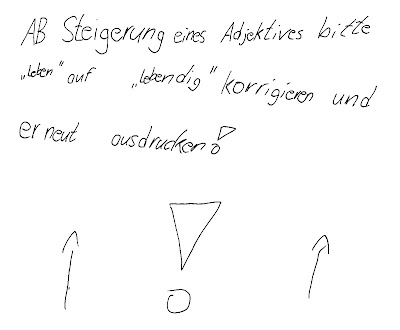 AB Steigerung eines Adjektives bitte
„leben" auf „lebendig" korrigieren und
erneut ausdrucken!
!